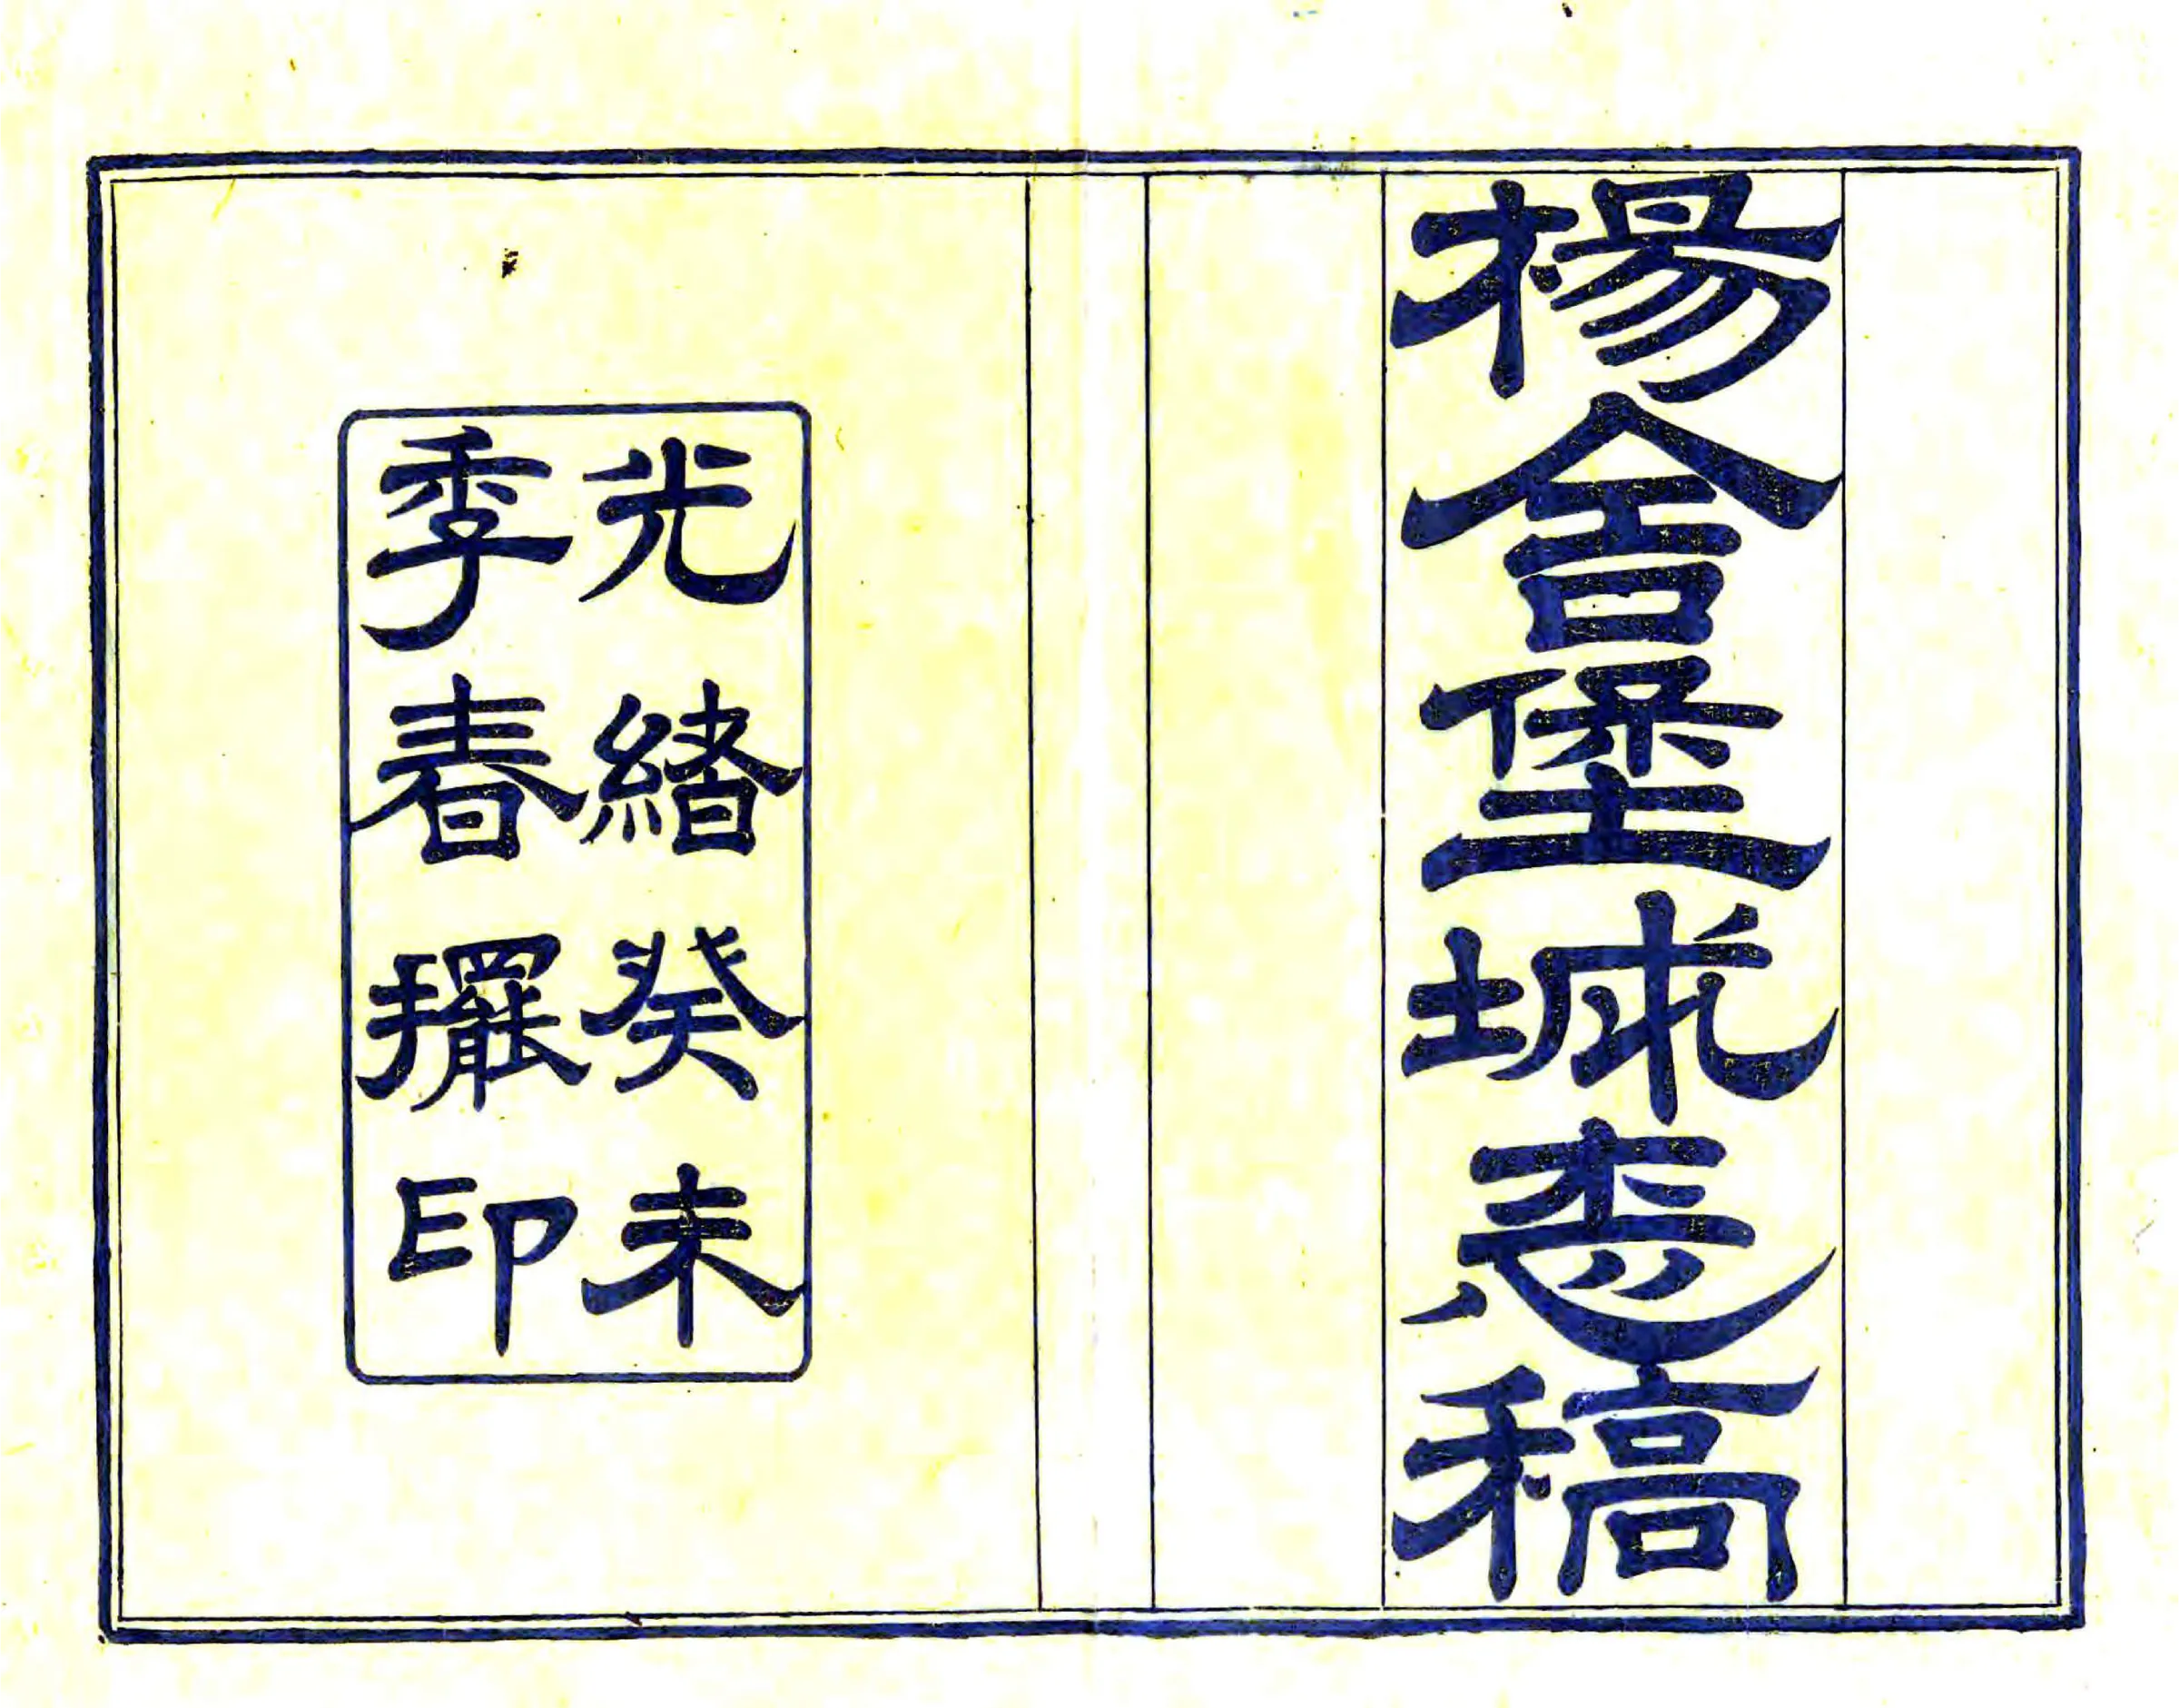 楊舍堡城志稿
光緒癸未
季春擺印